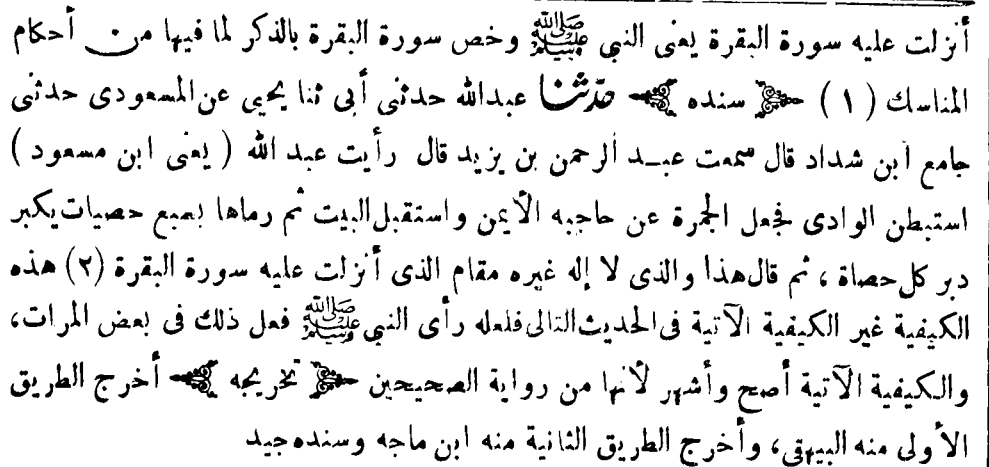 أنزلت عليه سورة البقرة يعنى النبي ﷺ وخص سورة البقرة بالذكر لما فيها من أحكام
المناسك (١) ﴿ سنده ﴾ حدثنا عبدالله حدثنى أبى ثنا يحيى عن المسعودى حدثنى
جامع ابن شداد قال سمعت عبد الرحمن بن يزيد قال رأيت عبد الله ( يعنى ابن مسعود )
استبطن الوادى فجعل الجمرة عن حاجبه الأيمن واستقبل البيت ثم رماها بسبع حصيات يكبر
دبر كل حصاة ، ثم قال هذا والذى لا إله غيره مقام الذى أنزلت عليه سورة البقرة (٢) هذه
الكيفية غير الكيفية الآتية فى الحديث التالى فلعله رأى النبي ﷺ فعل ذلك فى بعض المرات،
والكيفية الآتية أصح وأشهر لأنها من رواية الصحيحين ﴿ تخريجه ﴾ أخرج الطريق
الأولى منه البيهقى، وأخرج الطريق الثانية منه ابن ماجه وسنده جيد